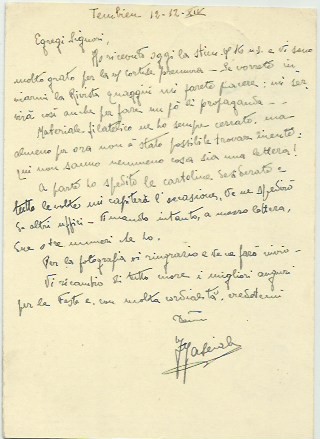 Tembien 12-12-XIV
Egregi Signori,
Ho ricevuto oggi la stim. u.s. e Vi sono
molto grato per la cortese premura - Se vorrete in
viarmi la Rivista quaggiù mi farete piacere: mi ser
virà così anche per fare un pò di propaganda -
Materiale filatelico ne ho sempre cercato, ma
almeno per ora non è stato possibile trovar niente:
qui non sanno nemmeno cosa sia una lettera!
A parte ho spedito le cartoline desiderate e
tutte le volte mi capiterà l'occasione, Ve ne spedirò
da altri uffici - Vi mando intanto, a mezzo lettera,
due o tre numeri che ho.
Per la fotografia vi ringrazio e Ve ne farò invio -
Vi ricambio di tutto cuore i migliori auguri
per le Feste e, con molta cordialità, credetemi